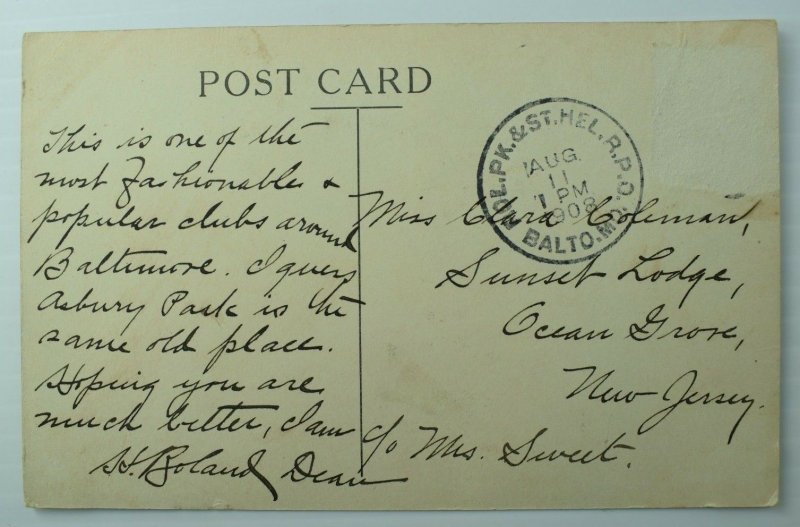 POST CARD
This is one of the
most fashionable &
popular clubs around
Baltimore. I guess
Asbury Park is the
same old place.
Hoping you are
much better, I am
H. Boland Dean
ROL.PK.&ST.HEL.R.P.O.
AUG
11
1 PM
1908
BALTO.MD.
Miss Clara Coleman,
Sunset Lodge,
Ocean Grove,
New Jersey.
c/o Mrs. Sweet.